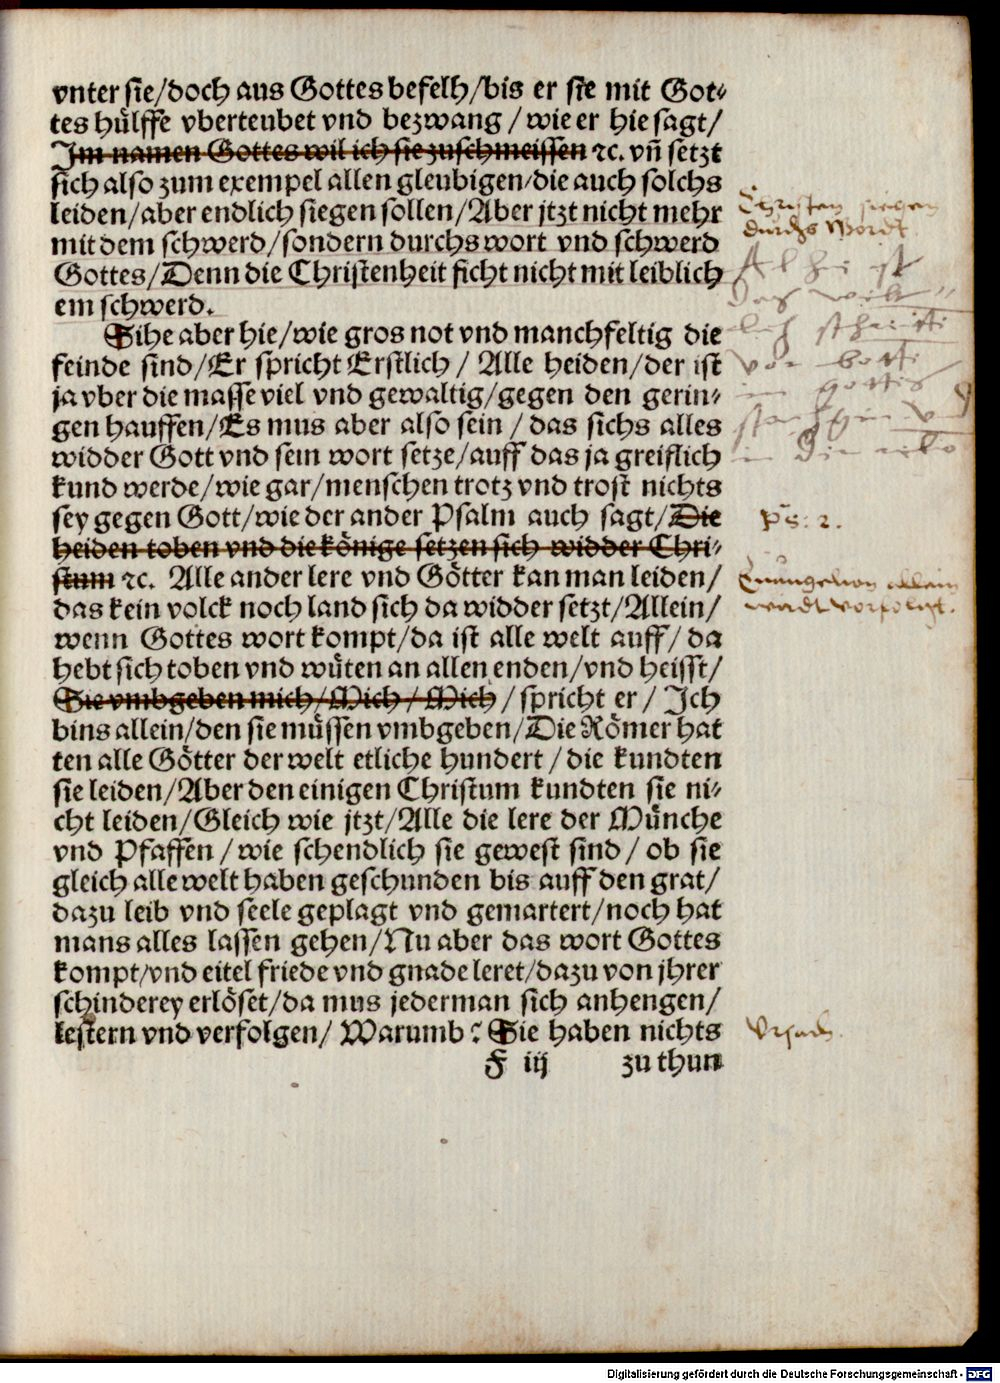 vnter sie/doch aus Gottes befelh/bis er sie mit Got⸗
tes hülffe vberteubet vnd bezwang/wie er hie sagt/
Im namen Gottes wil ich sie zuschmeissen ꝛc. vñ setzt
sich also zum exempel allen gleubigen/die auch solchs
leiden/aber endlich siegen sollen/Aber jtzt nicht mehr
mit dem schwerd/sondern durchs wort vnd schwerd
Gottes/Denn die Christenheit ficht nicht mit leiblich
em schwerd.
Christen siegen
durchs Wordt
Sihe aber hie/wie gros not vnd manchfeltig die
feinde sind/Er spricht Erstlich/Alle heiden/der ist
ja vber die masse viel vnd gewaltig/gegen den gerin⸗
gen hauffen/Es mus aber also sein/das sichs alles
widder Gott vnd sein wort setze/auff das ja greiflich
kund werde/wie gar/menschen trotz vnd trost nichts
sey gegen Gott/wie der ander Psalm auch sagt/Die
heiden toben vnd die könige setzen sich widder Chri⸗
stum ꝛc. Alle ander lere vnd Götter kan man leiden/
das kein volck noch land sich da widder setzt/Allein/
wenn Gottes wort kompt/da ist alle welt auff/da
hebt sich toben vnd wüten an allen enden/vnd heisst/
Sie vmbgeben mich/Mich/Mich/spricht er/Ich
bins allein/den sie müssen vmbgeben/Die Römer hat
ten alle Götter der welt etliche hundert/die kundten
sie leiden/Aber den einigen Christum kundten sie ni⸗
cht leiden/Gleich wie jtzt/Alle die lere der Münche
vnd Pfaffen/wie schendlich sie gewest sind/ob sie
gleich alle welt haben geschunden bis auff den grat/
dazu leib vnd seele geplagt vnd gemartert/noch hat
mans alles lassen gehen/Nu aber das wort Gottes
kompt/vnd eitel friede vnd gnade leret/dazu von jhrer
schinderey erlöset/da mus jederman sich anhengen/
lestern vnd verfolgen/Warumb? Sie haben nichts
Ps: 2.
Euangelion allein
werdt vorfolgt.
Vrsach.
F iij zu thun
Digitalisierung gefördert durch die Deutsche Forschungsgemeinschaft - DFG